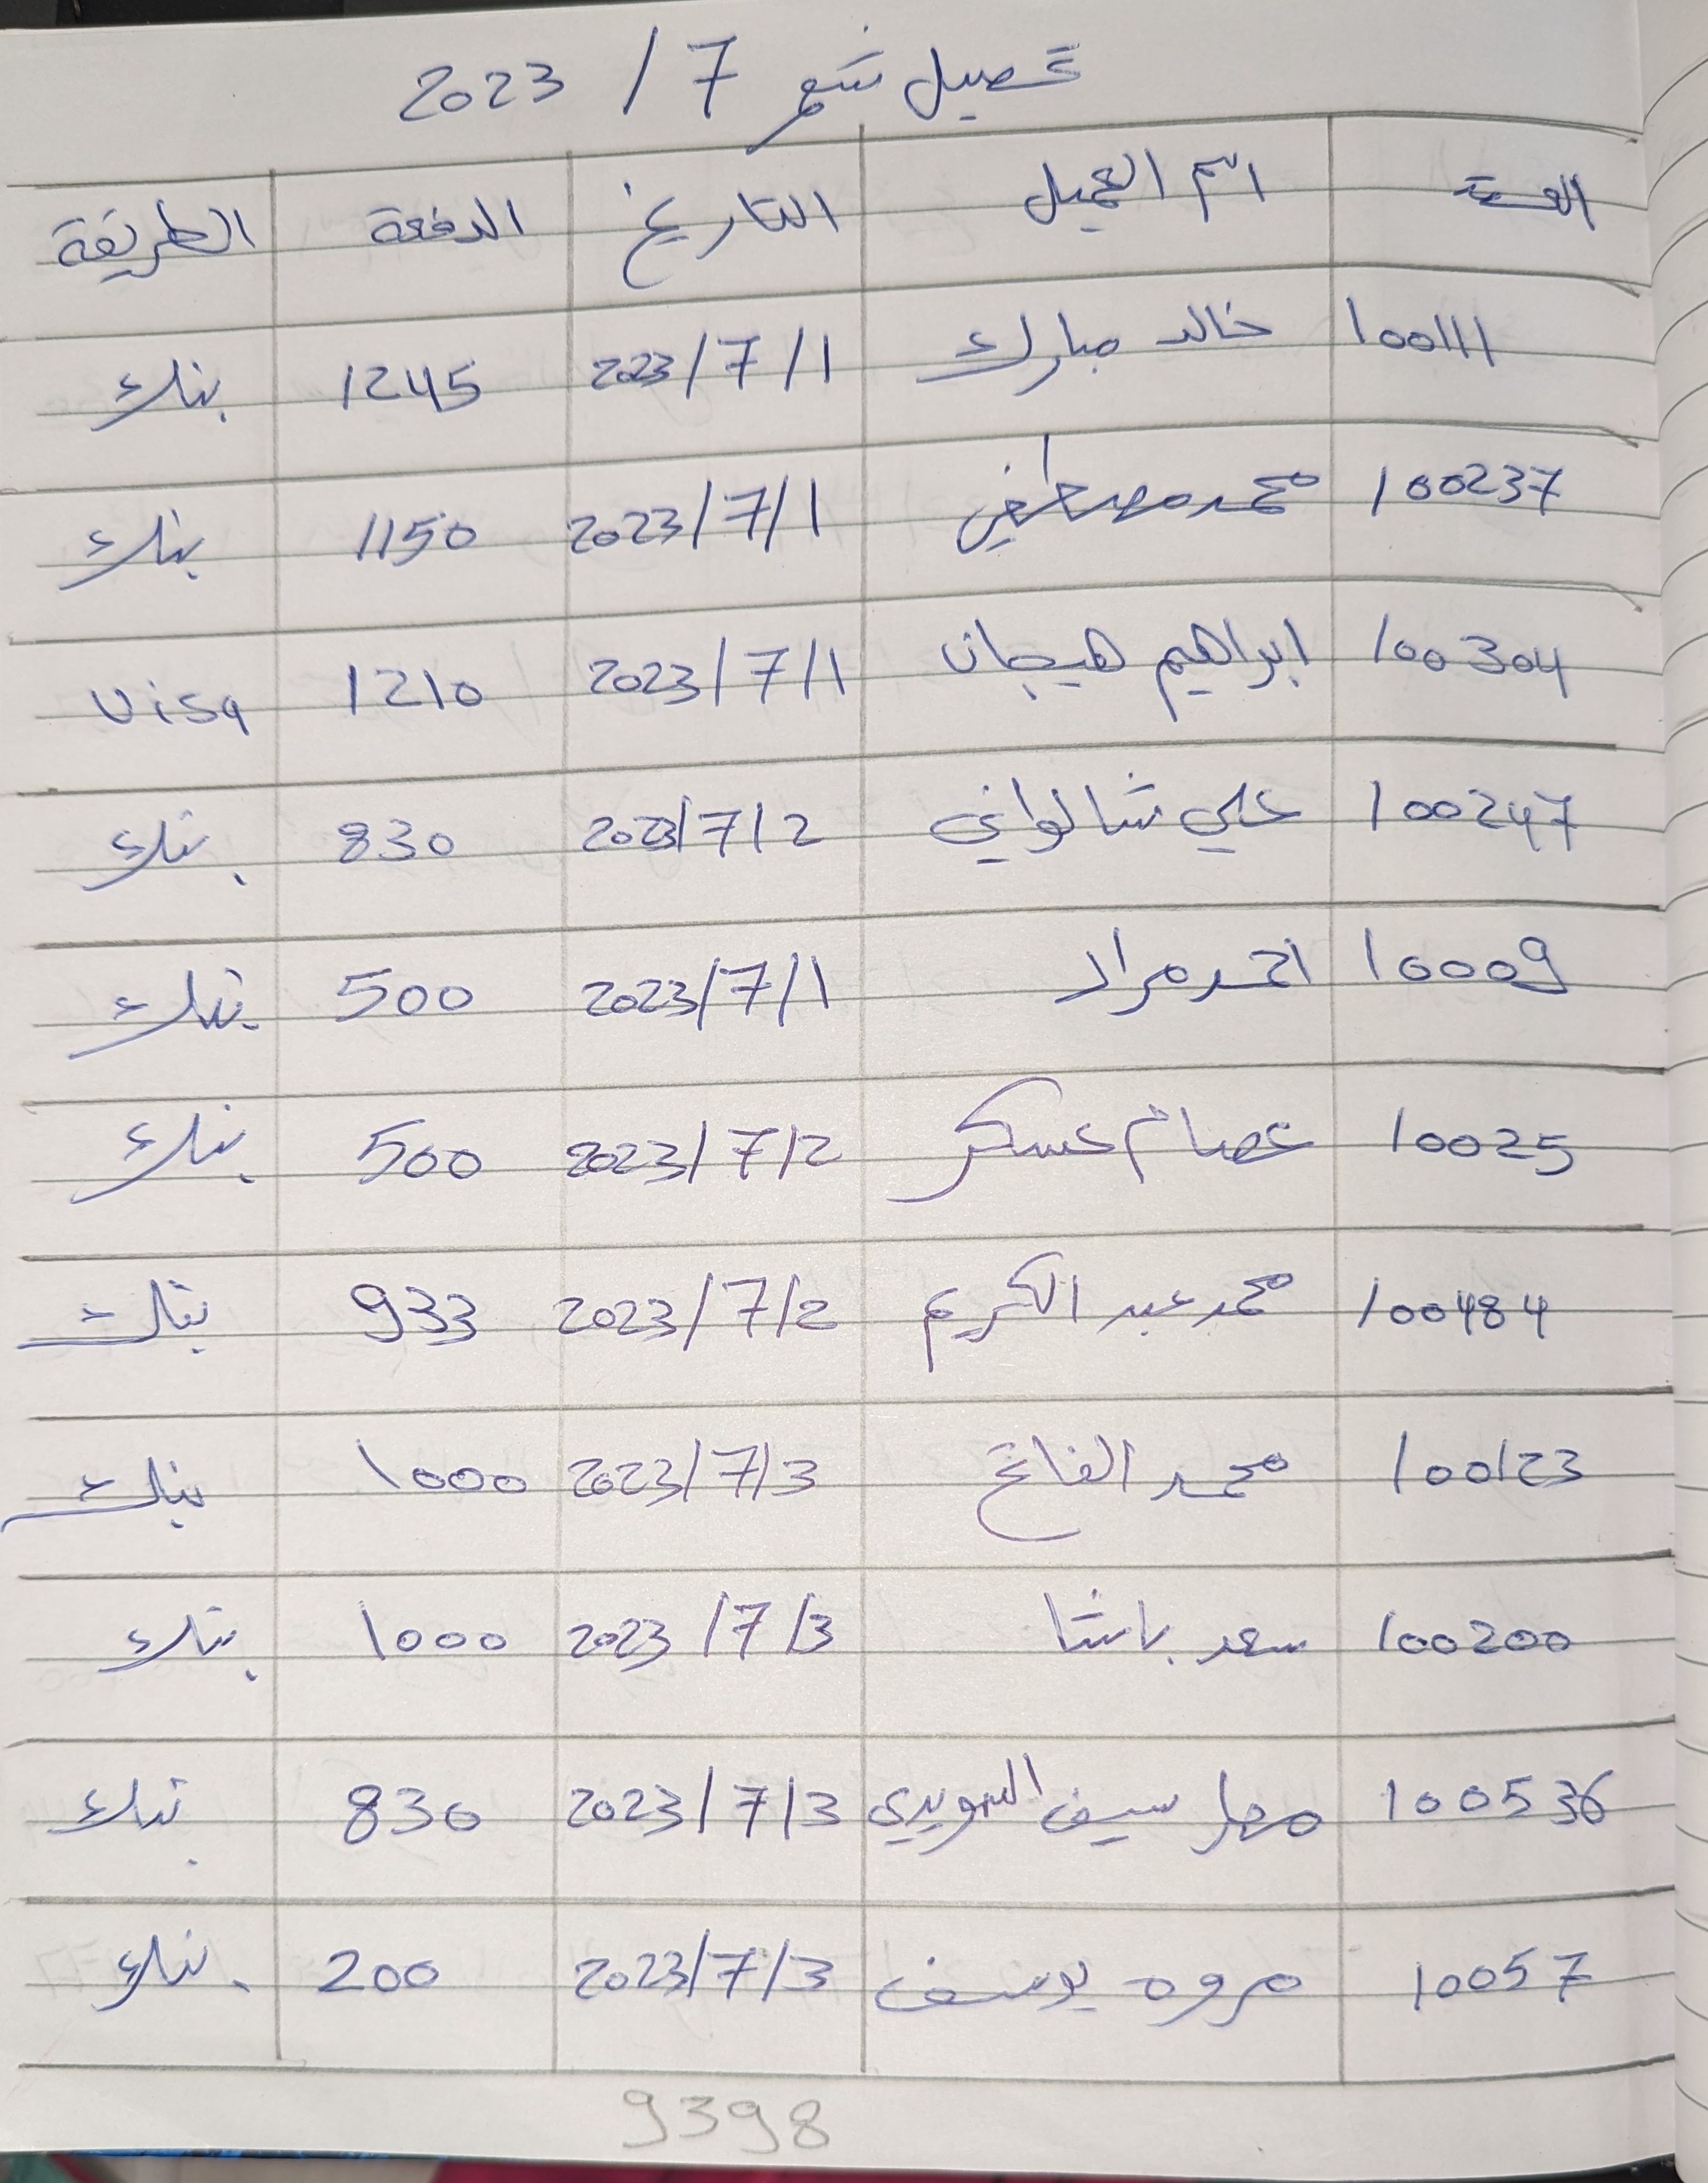 تحصيل شهر 7 / 2023
اسم العميل التاريخ الدفعة الطريقة
100111 خالد مبارك 2023/7/1 1245 بنك
100237 محمد مصطفي 2023/7/1 1150 بنك
100304 ابراهيم هيجان 2023/7/1 1210 visa
100247 علي شالواني 2023/7/2 830 بنك
10009 احمد مراد 2023/7/1 500 بنك
10025 عصام عسكر 2023/7/2 500 بنك
100484 محمد عبد الكريم 2023/7/2 933 بنك
100123 محمد الفاتح 2023/7/3 1000 بنك
100200 سعد باشا 2023/7/3 1000 بنك
100536 سيف السويدي 2023/7/3 830 بنك
10057 مروه يوسف 2023/7/3 200 بنك
9398